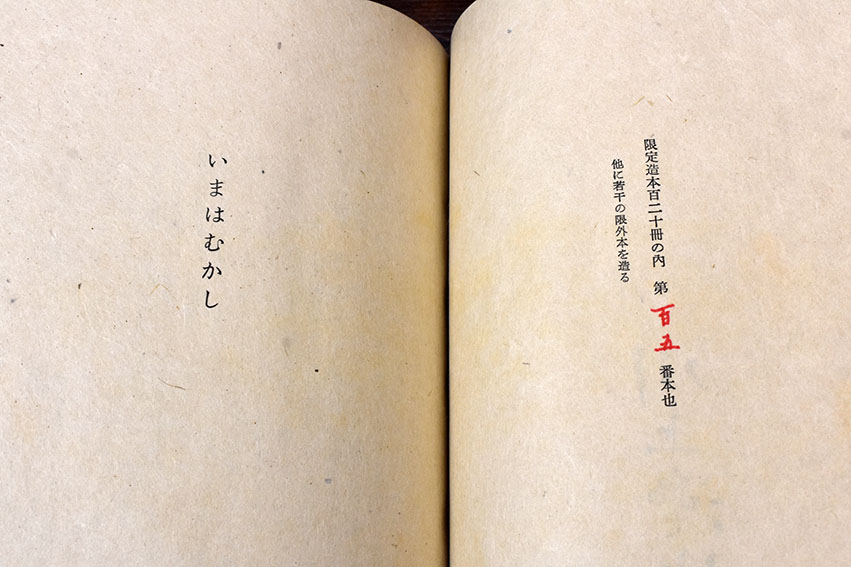 限定造本百二十冊の內 第百五番本也
他に若干の限外本を造る
いまはむかし